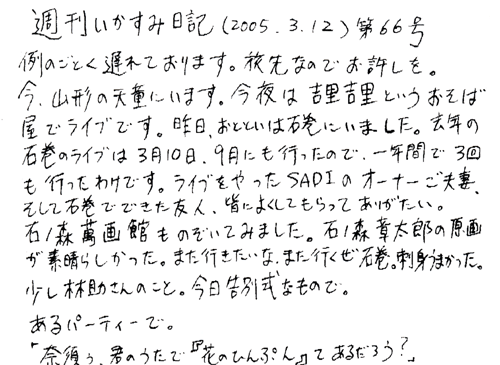 週刊いかすみ日記(2005.3.12)第66号
例のごとく遅れております。旅先なのでお許しを。
今、山形の天童にいます。今夜は吉里吉里というおそば
屋でライブです。昨日、おとといは石巻にいました。去年の
石巻のライブは3月10日、9月にも行ったので、一年間で3回
も行ったわけです。ライブをやったSADIのオーナーご夫妻、
そして石巻でできた友人、皆によくしてもらってありがたい。
石ノ森萬画館ものぞいてみました。石ノ森章太郎の原画
が素晴らしかった。また行きたいな、また行くぜ石巻。刺身うまかった。
少し林助さんのこと。今日告別式なもので。
あるパーティーで。
「奈須ぅ、君のうたで『花のひんぷん』てあるだろう?」